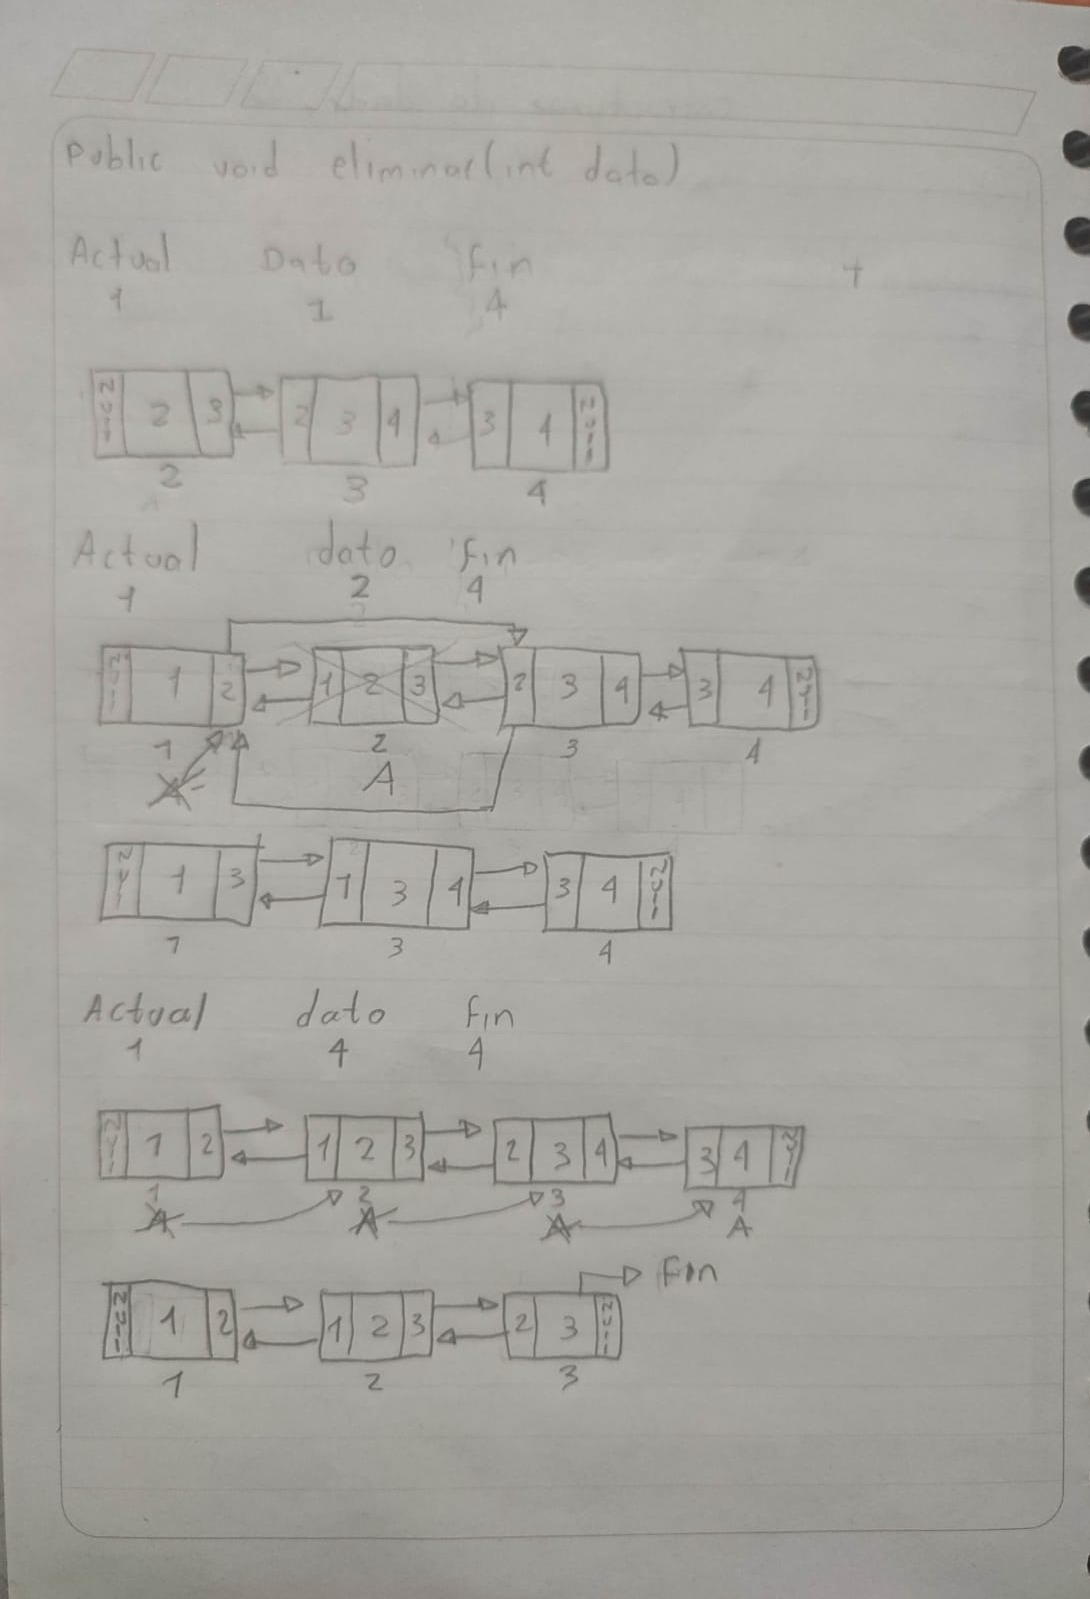 Public void eliminar(int data)
Actual Dato Fin
1 1 4
Null 2 3 2 3 4 3 4 Null
2 3 4
Actual dato Fin
1 2 4
Null 1 2 1 2 3 2 3 4 3 4 Null
1 2 3 4
A A
Null 1 3 1 3 4 3 4 Null
1 3 4
Actual dato Fin
1 4 4
Null 1 2 1 2 3 2 3 4 3 4 Null
1 2 3 4
A A A A
Fin
Null 1 2 1 2 3 2 3 Null
1 2 3